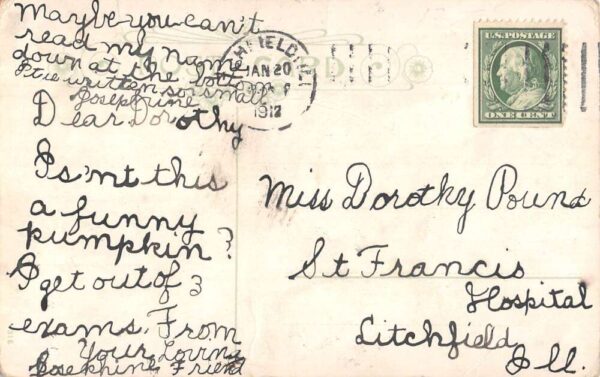 Maybe you can't
read my name
down at the bottom
I've written so small
Josephine
Dear Dorothy
Is'nt this
a funny
pumpkin?
I get out of 3
exams. From
Your Loving
Josephine Friend
POST CARD
CHFIELD, ILL.
JAN 20
1912
U.S. POSTAGE
ONE CENT
Miss Dorothy Pound
St Francis
Hospital
Litchfield
Ill.